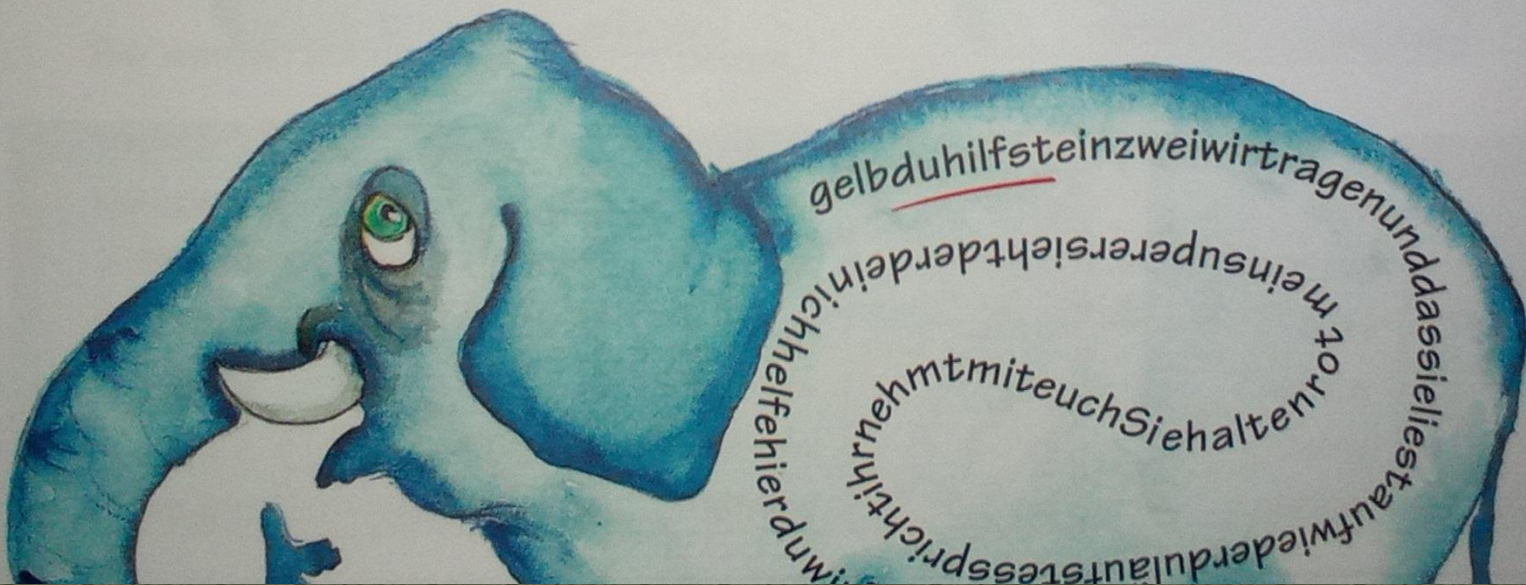 gelbduhilfsteinzweiwirtragenunddassieliestaufwiederdulaufstessprichtihrnehmtmiteuchSiehaltenrot meinsuperersiehtderdeinichhelfehier